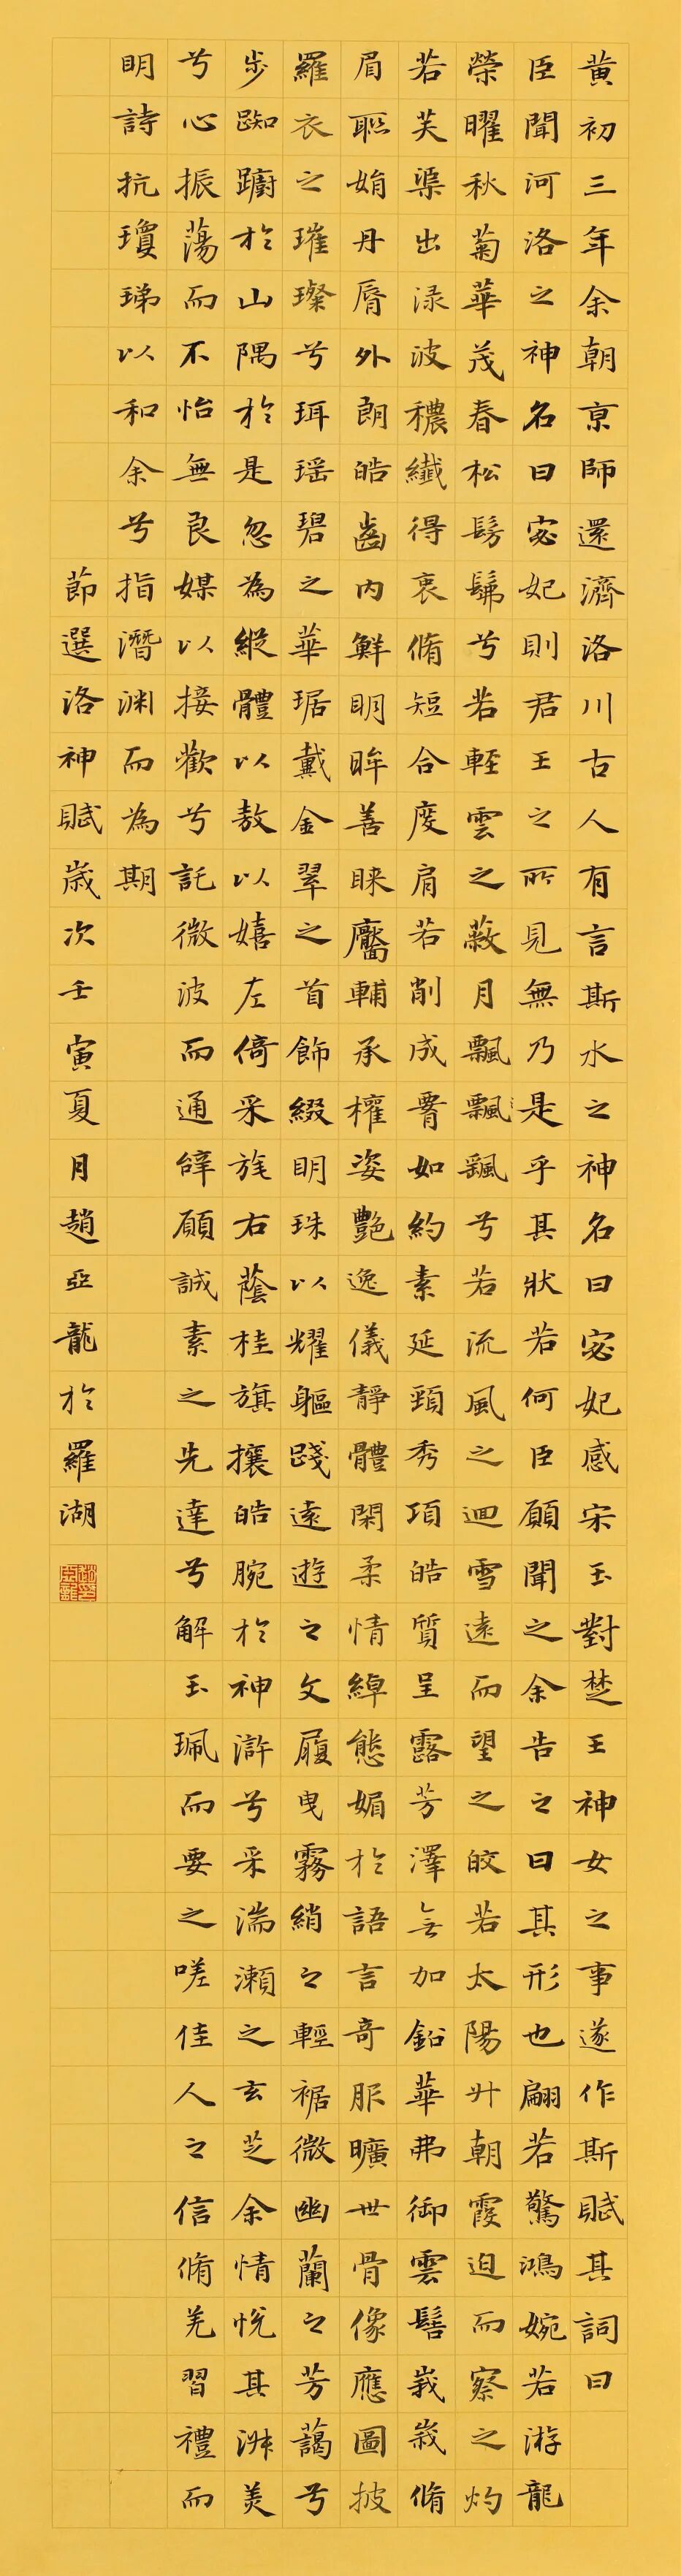 黄初三年余朝京師還濟洛川古人有言斯水之神名曰宓妃感宋玉對楚王神女之事遂作斯賦其詞曰
臣聞河洛之神名曰宓妃則君王之所見無乃是乎其狀若何臣願聞之余告之曰其形也翩若驚鴻婉若游龍
榮曜秋菊華茂春松髣髴兮若輕雲之蔽月飄飄飖兮若流風之迴雪遠而望之皎若太陽升朝霞迫而察之灼
若芙蕖出渌波穠纖得衷脩短合度肩若削成腰如約素延頸秀項皓質呈露芳澤無加鉛華弗御雲髻峩峩脩
眉聮娟丹脣外朗皓齒內鮮明眸善睞靨輔承權姿艷逸儀靜體閑柔情綽態媚於語言奇服曠世骨像應圖披
羅衣之璀璨兮珥瑶碧之華琚戴金翠之首飾綴明珠以耀軀踐遠遊之文履曳霧綃之輕裾微幽蘭之芳藹兮
步踟躕於山隅於是忽為縱體以敖以嬉左倚采旄右蔭桂旗攘皓腕於神滸兮采湍瀬之玄芝余情悅其淑美
兮心振蕩而不怡無良媒以接歡兮託微波而通辝願誠素之先達兮解玉珮而要之嗟佳人之信脩羌習禮而
明詩抗瓊珶以和余兮指潛渊而為期
節選洛神賦歲次壬寅夏月趙亞龍於羅湖